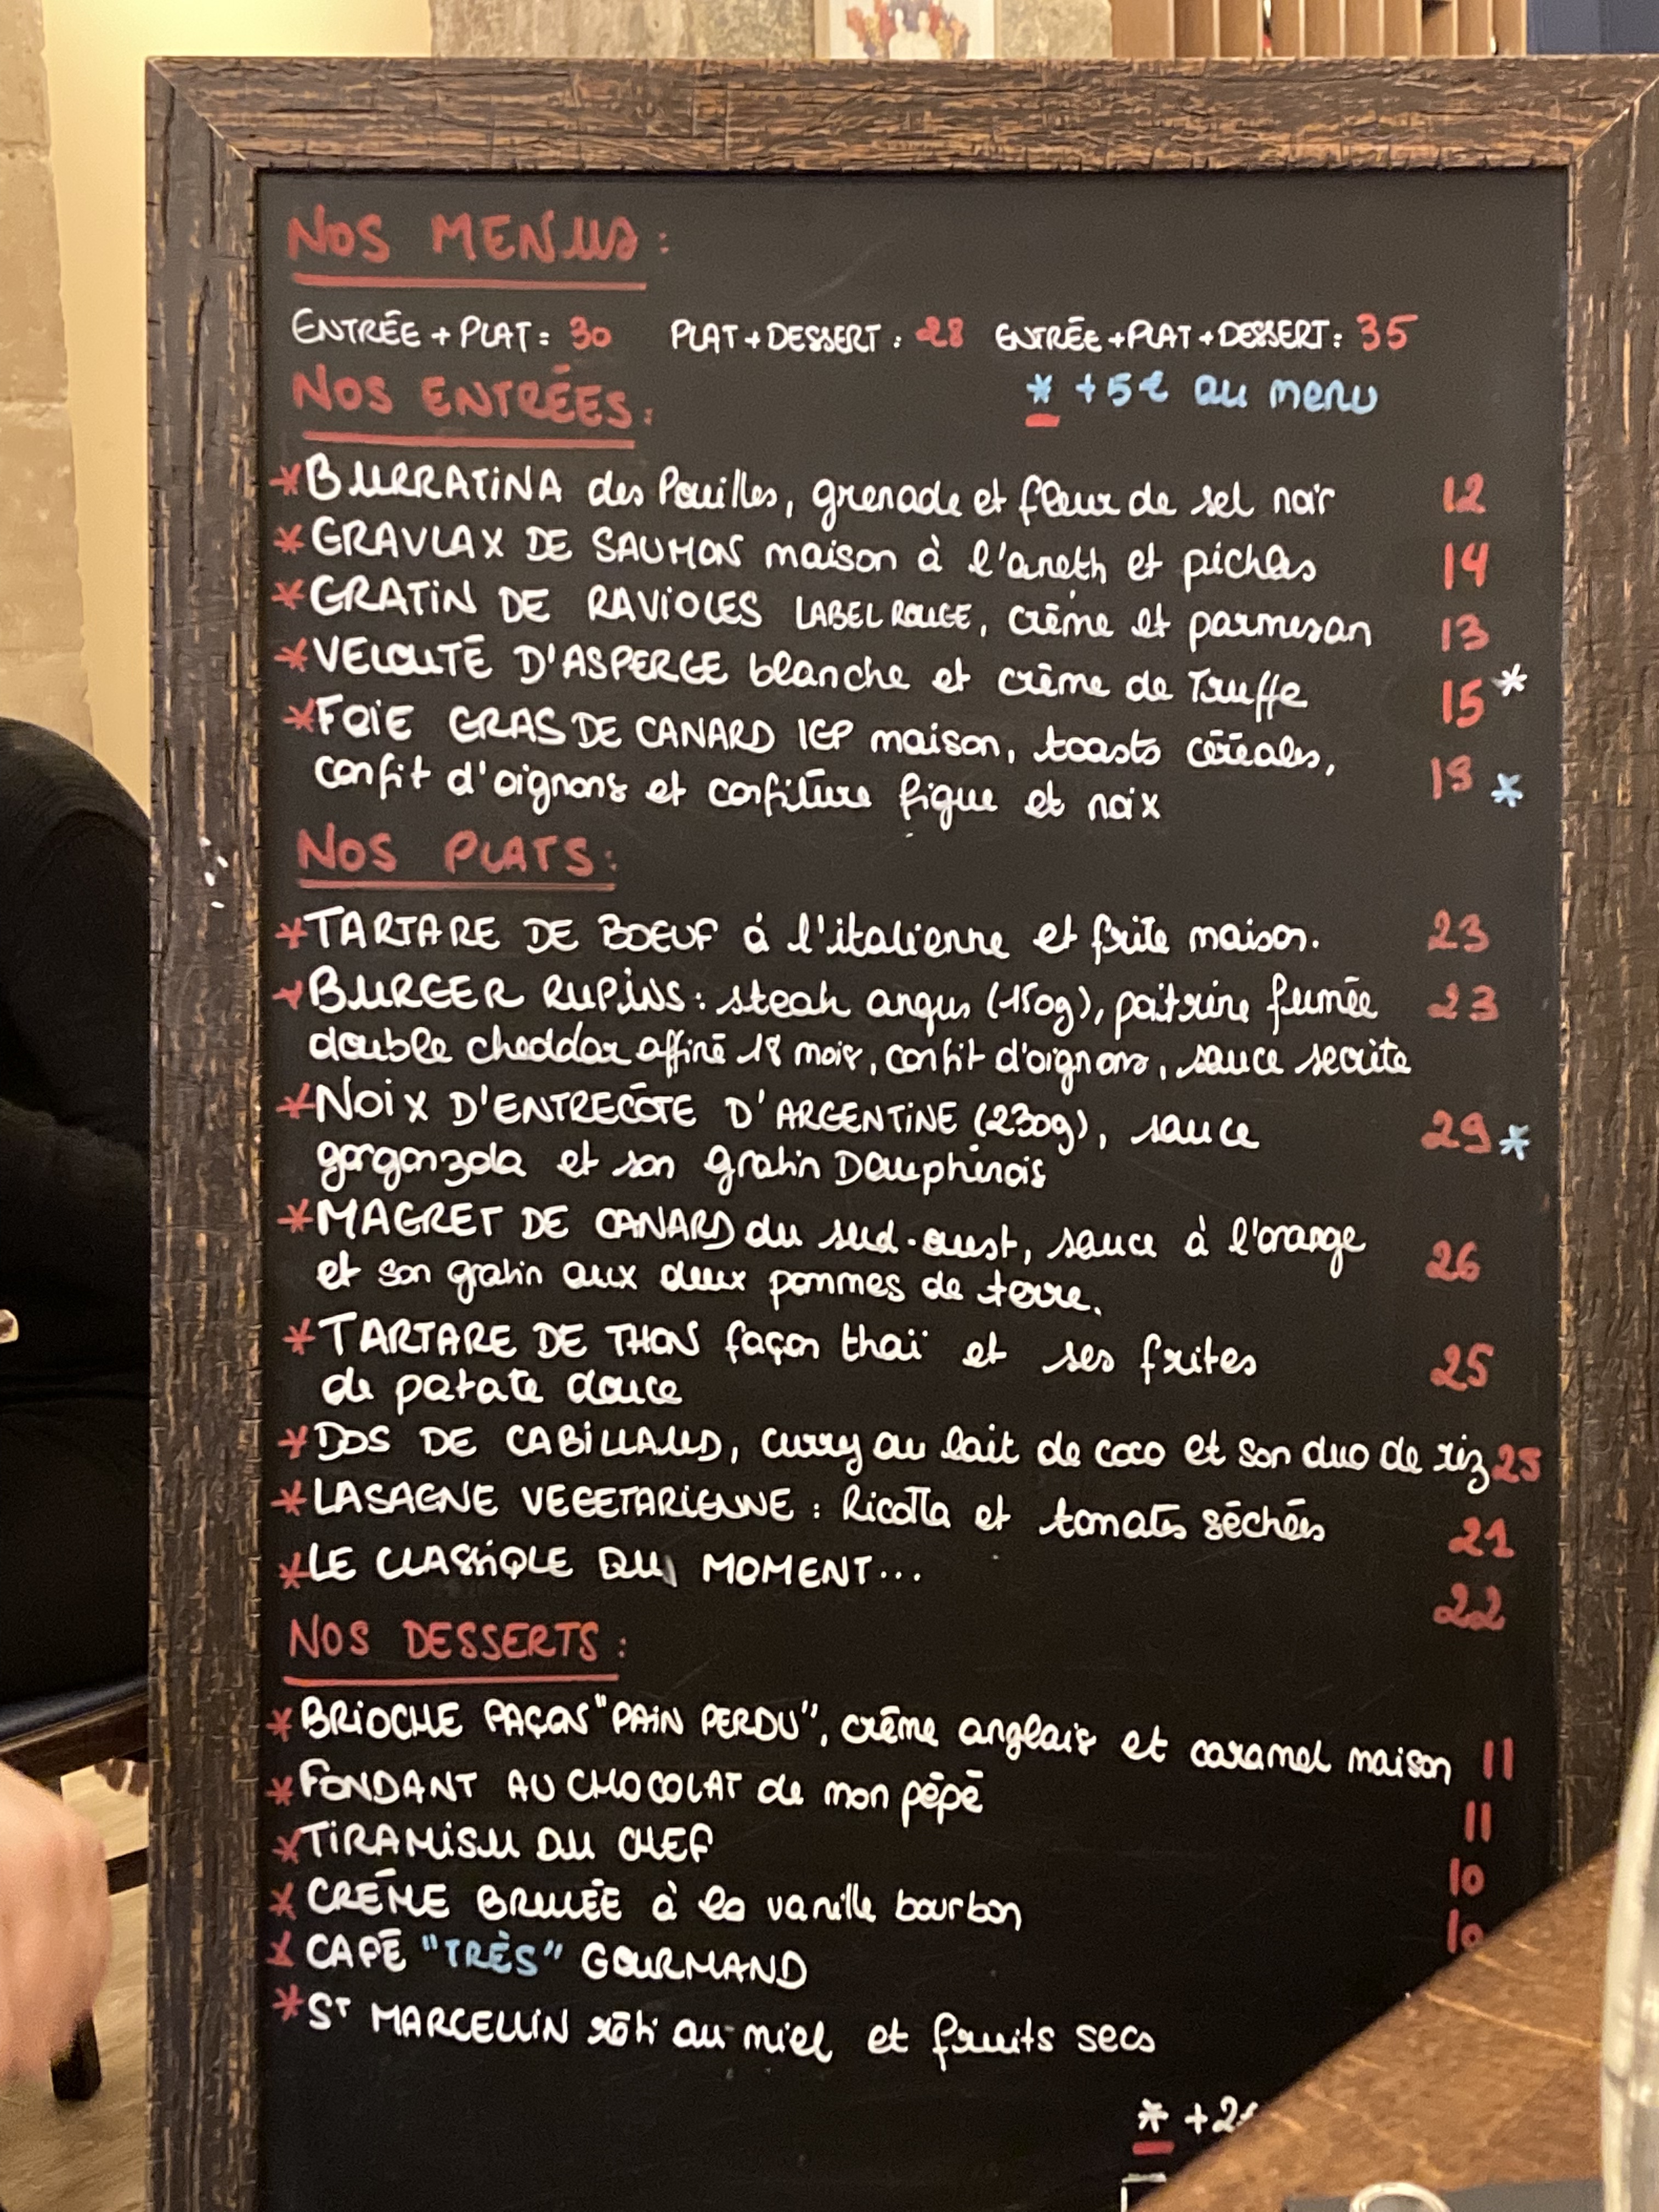 NOS MENUS :
ENTRÉE + PLAT = 30 PLAT + DESSERT : 28 ENTRÉE + PLAT + DESSERT : 35
* +5€ au menu
NOS ENTRÉES :
* BURRATINA des Pouilles, grenade et fleur de sel noir 12
* GRAVLAX DE SAUMON maison à l'aneth et pickles 14
* GRATIN DE RAVIOLES LABEL ROUGE, crème et parmesan 13
* VELOUTÉ D'ASPERGE blanche et crème de Truffe 15 *
* FOIE GRAS DE CANARD IGP maison, toasts céréales,
confit d'oignons et confiture figue et noix *
NOS PLATS :
* TARTARE DE BOEUF à l'italienne et frite maison. 23
* BURGER RUPINS : steak angus (150g), poitrine fumée 23
double cheddar affiné 18 mois, confit d'oignons, sauce secrète
* NOIX D'ENTRECÔTE D'ARGENTINE (230g), sauce
gorgonzola et son gratin Dauphinois 29 *
* MAGRET DE CANARD du sud-ouest, sauce à l'orange
et son gratin aux deux pommes de terre. 26
* TARTARE DE THON façon thaï et ses frites
de patate douce 25
* DOS DE CABILLAUD, curry au lait de coco et son duo de riz 25
* LASAGNE VEGETARIENNE : Ricotta et tomates séchées 21
* LE CLASSIQUE DU MOMENT... 22
NOS DESSERTS :
* BRIOCHE FAÇON "PAIN PERDU", crème anglais et caramel maison 11
* FONDANT AU CHOCOLAT de mon pépé 11
* TIRAMISU DU CHEF 10
* CRÈME BRULÉE à la vanille bourbon 10
* CAFÉ "TRÈS" GOURMAND
* ST MARCELLIN rôti au miel et fruits secs
* +2